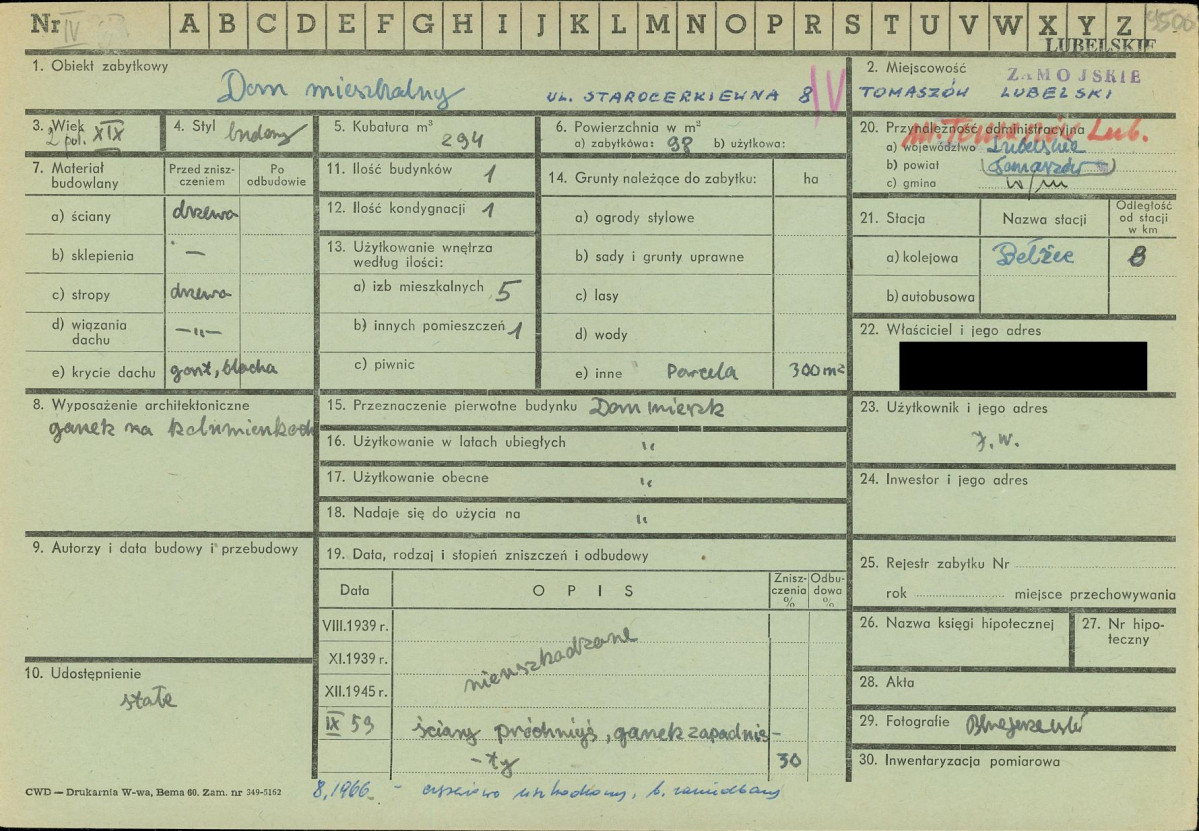 Nr IV A B C D E F G H I J K L M N O P R S T U V W X Y Z
LUBELSKIE
1. Obiekt zabytkowy
Dom mieszkalny UL. STAROCERKIEWNA 8 IV
2. Miejscowość ZAMOJSKIE
TOMASZÓW LUBELSKI
3. Wiek 2 poł. XIX
4. Styl
5. Kubatura m³
294
6. Powierzchnia w m²
a) zabytkówa: 98 b) użytkowa:
7. Materiał budowlany
Przed znisz-
czeniem
Po
odbudowie
a) ściany drzewo
b) sklepienia —
c) stropy drzewo
d) wiązania
dachu —"—
e) krycie dachu gont, blacha
8. Wyposażenie architektoniczne
ganek na kolumienkach
9. Autorzy i data budowy i przebudowy
10. Udostępnienie
stałe
11. Ilość budynków 1
12. Ilość kondygnacji 1
13. Użytkowanie wnętrza
według ilości:
a) izb mieszkalnych 5
b) innych pomieszczeń 1
c) piwnic
14. Grunty należące do zabytku: ha
a) ogrody stylowe
b) sady i grunty uprawne
c) lasy
d) wody
e) inne Parcela 300 m²
15. Przeznaczenie pierwotne budynku Dom mieszk
16. Użytkowanie w latach ubiegłych "
17. Użytkowanie obecne "
18. Nadaje się do użycia na "
19. Data, rodzaj i stopień zniszczeń i odbudowy
Data
OPIS
Znisz-
czenia
%
Odbu-
dowa
%
VIII.1939 r.
XI.1939 r.
XII.1945 r.
nieuszkodzone
IX 59 ściany próchniejś, ganek zapadnię-
-ty 30
20. Przynależność administracyjna
a) województwo Lubelskie
b) powiat (Tomaszów)
c) gmina w/m
21. Stacja
Nazwa stacji
Odległość
od stacji
w km
a) kolejowa Bełżec 8
b) autobusowa
22. Właściciel i jego adres
23. Użytkownik i jego adres
j.w.
24. Inwestor i jego adres
25. Rejestr zabytku Nr
rok miejsce przechowywania
26. Nazwa księgi hipotecznej
27. Nr hipo-
teczny
28. Akta
29. Fotografie
30. Inwentaryzacja pomiarowa
CWD — Drukarnia W-wa, Bema 60. Zam. nr 349-5162
8.1966. - uszkodzony, b. zaniedbany